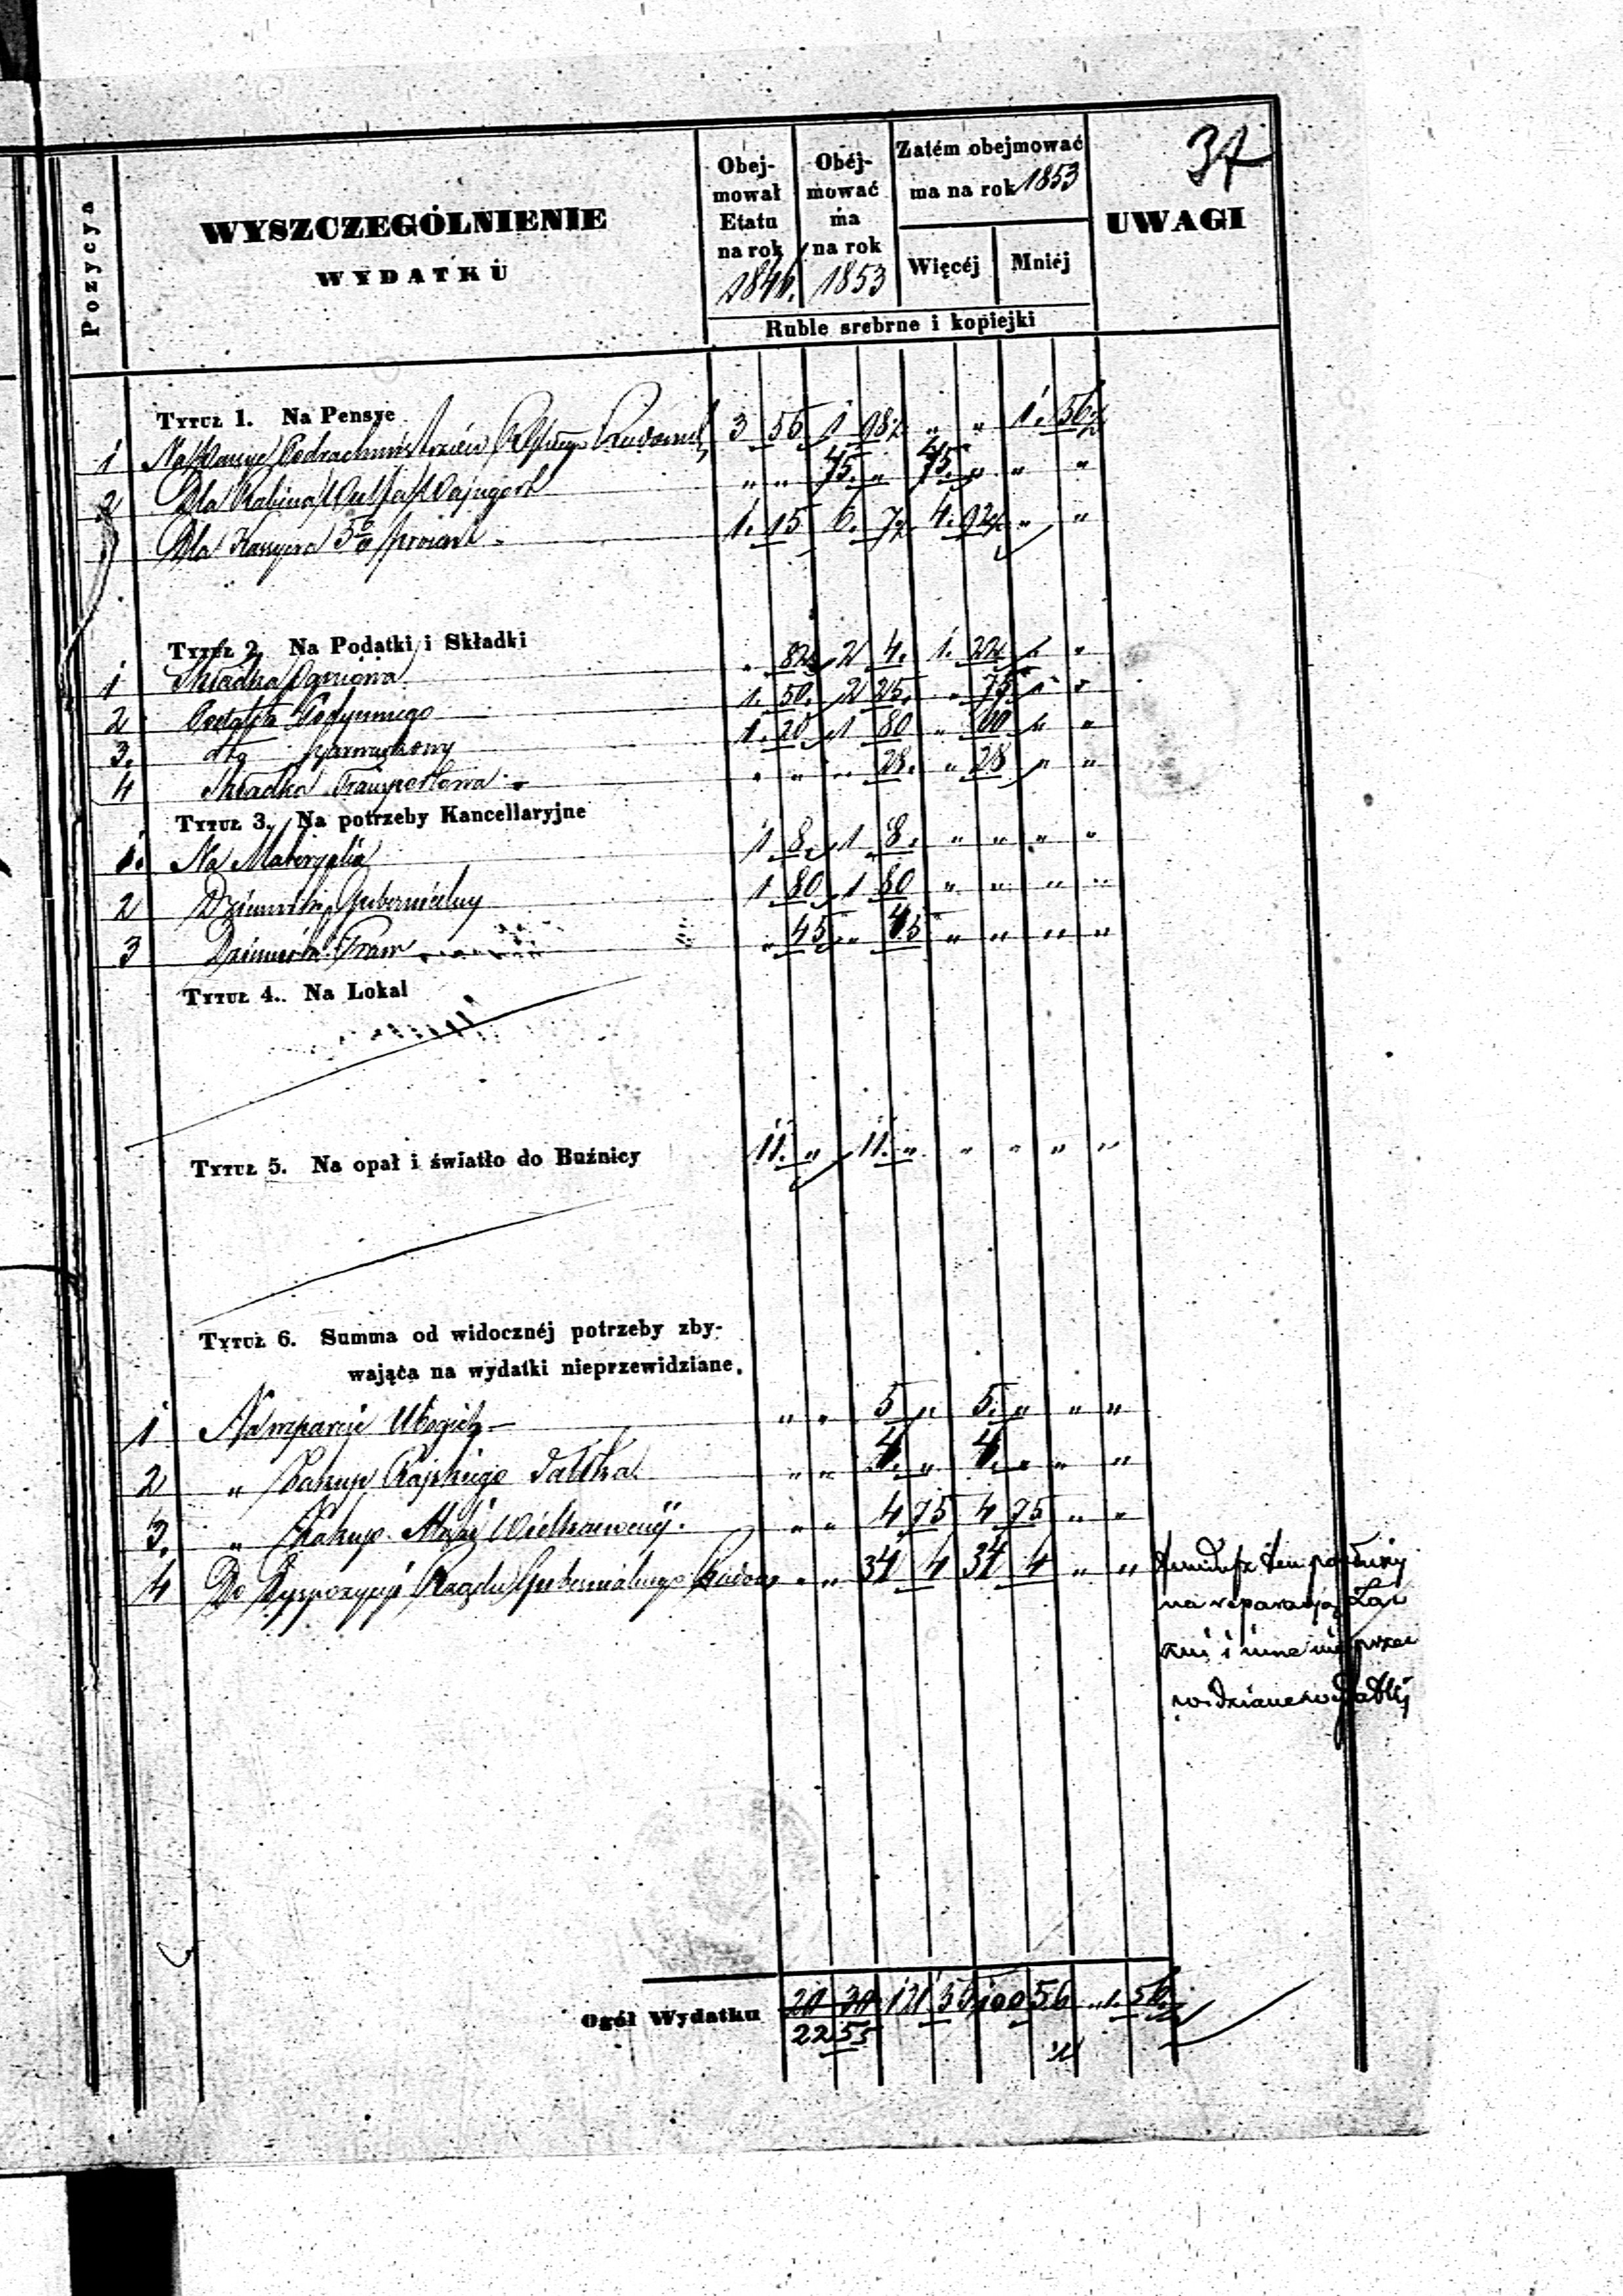 37
Pozycya
WYSZCZEGÓLNIENIE
WYDATKU
Obej-
mował
Etatu
na rok
1846.
Obej-
mować
ma
na rok
1853
Zatém obejmować
ma na rok 1853
Więcéj
Mniéj
UWAGI
Ruble srebrne i kopiejki
Tytuł 1. Na Pensye
1 Na 3 55 1 98½ „ „ 1. 56½
2 Dla Rabina „ „ 75. „ 75. „ „ „
Dla Kassyera procent 1. 15 6. 7½ 4. 92½ „ „
Tytuł 2. Na Podatki i Składki
1 Składka Ogniowa „ 82½ 2 4. 1. 22½ „ „
2 Podymnego 1. 50. 2 25. „ 75 „ „
3. dto 1. 20 1 80 „ 60 „ „
4 Składka Transportowa „ „ „ 28. „ 28 „ „
Tytuł 3. Na potrzeby Kancellaryjne
1. Na Materyalia 1 8. 1 8. „ „ „ „
2 Dziennik Gubernialny 1 80 1 80 „ „ „ „
3 Dziennik Praw „ 45 „ 45 „ „ „ „
Tytuł 4. Na Lokal
Tytuł 5. Na opał i światło do Buźnicy 11. „ 11. „ „ „ „ „
Tytuł 6. Summa od widocznéj potrzeby zby-
wająca na wydatki nieprzewidziane.
1 Na wsparcie Ubogich „ „ 5 „ 5. „ „ „
2 „ Zakup Rajskiego Jabłka „ „ 4. „ 4. „ „ „
3. „ Zakup Mąki Wielkanocnéj „ „ 4 75 4 75 „ „
4 Do Dyspozycyi Rządu Gubernialnego „ „ 34 4 34 4 „ „
Fundusz ten posłuży
na reparacją Łaź
ni i inne nieprze
widziane wydatki
Ogół Wydatku 121 55 100 56 „ 1. 56½
22 55